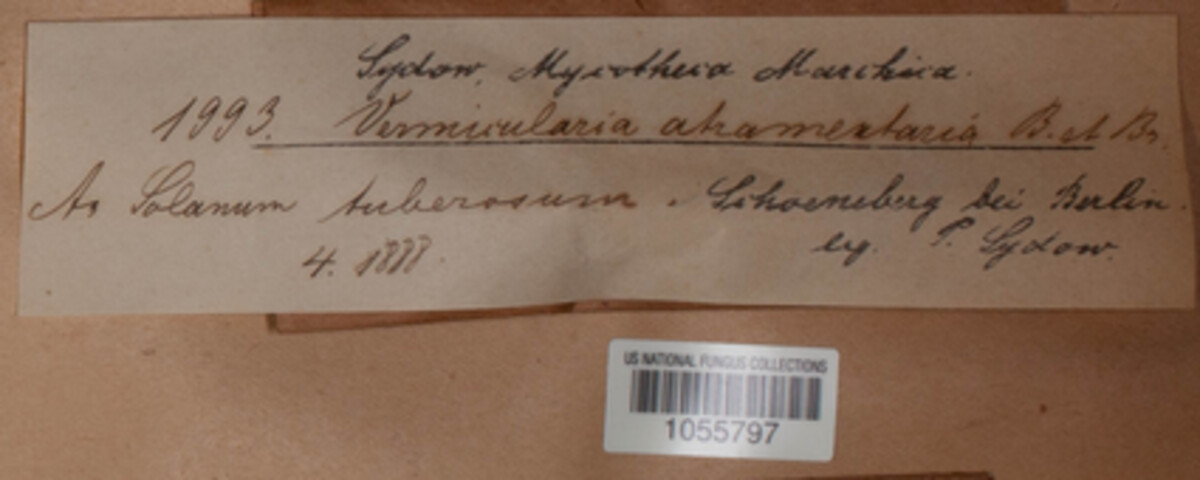 Sydow, Mycotheca Marchica.
1993. Vermicularia atramentaria B. et Br.
An Solanum tuberosum. Schoeneberg bei Berlin.
4. 1888. leg. P. Sydow.
US NATIONAL FUNGUS COLLECTIONS
1055797